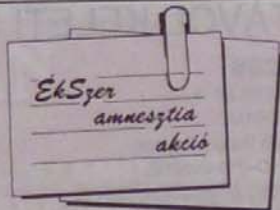 ÉkSzer
amnesztia
akció